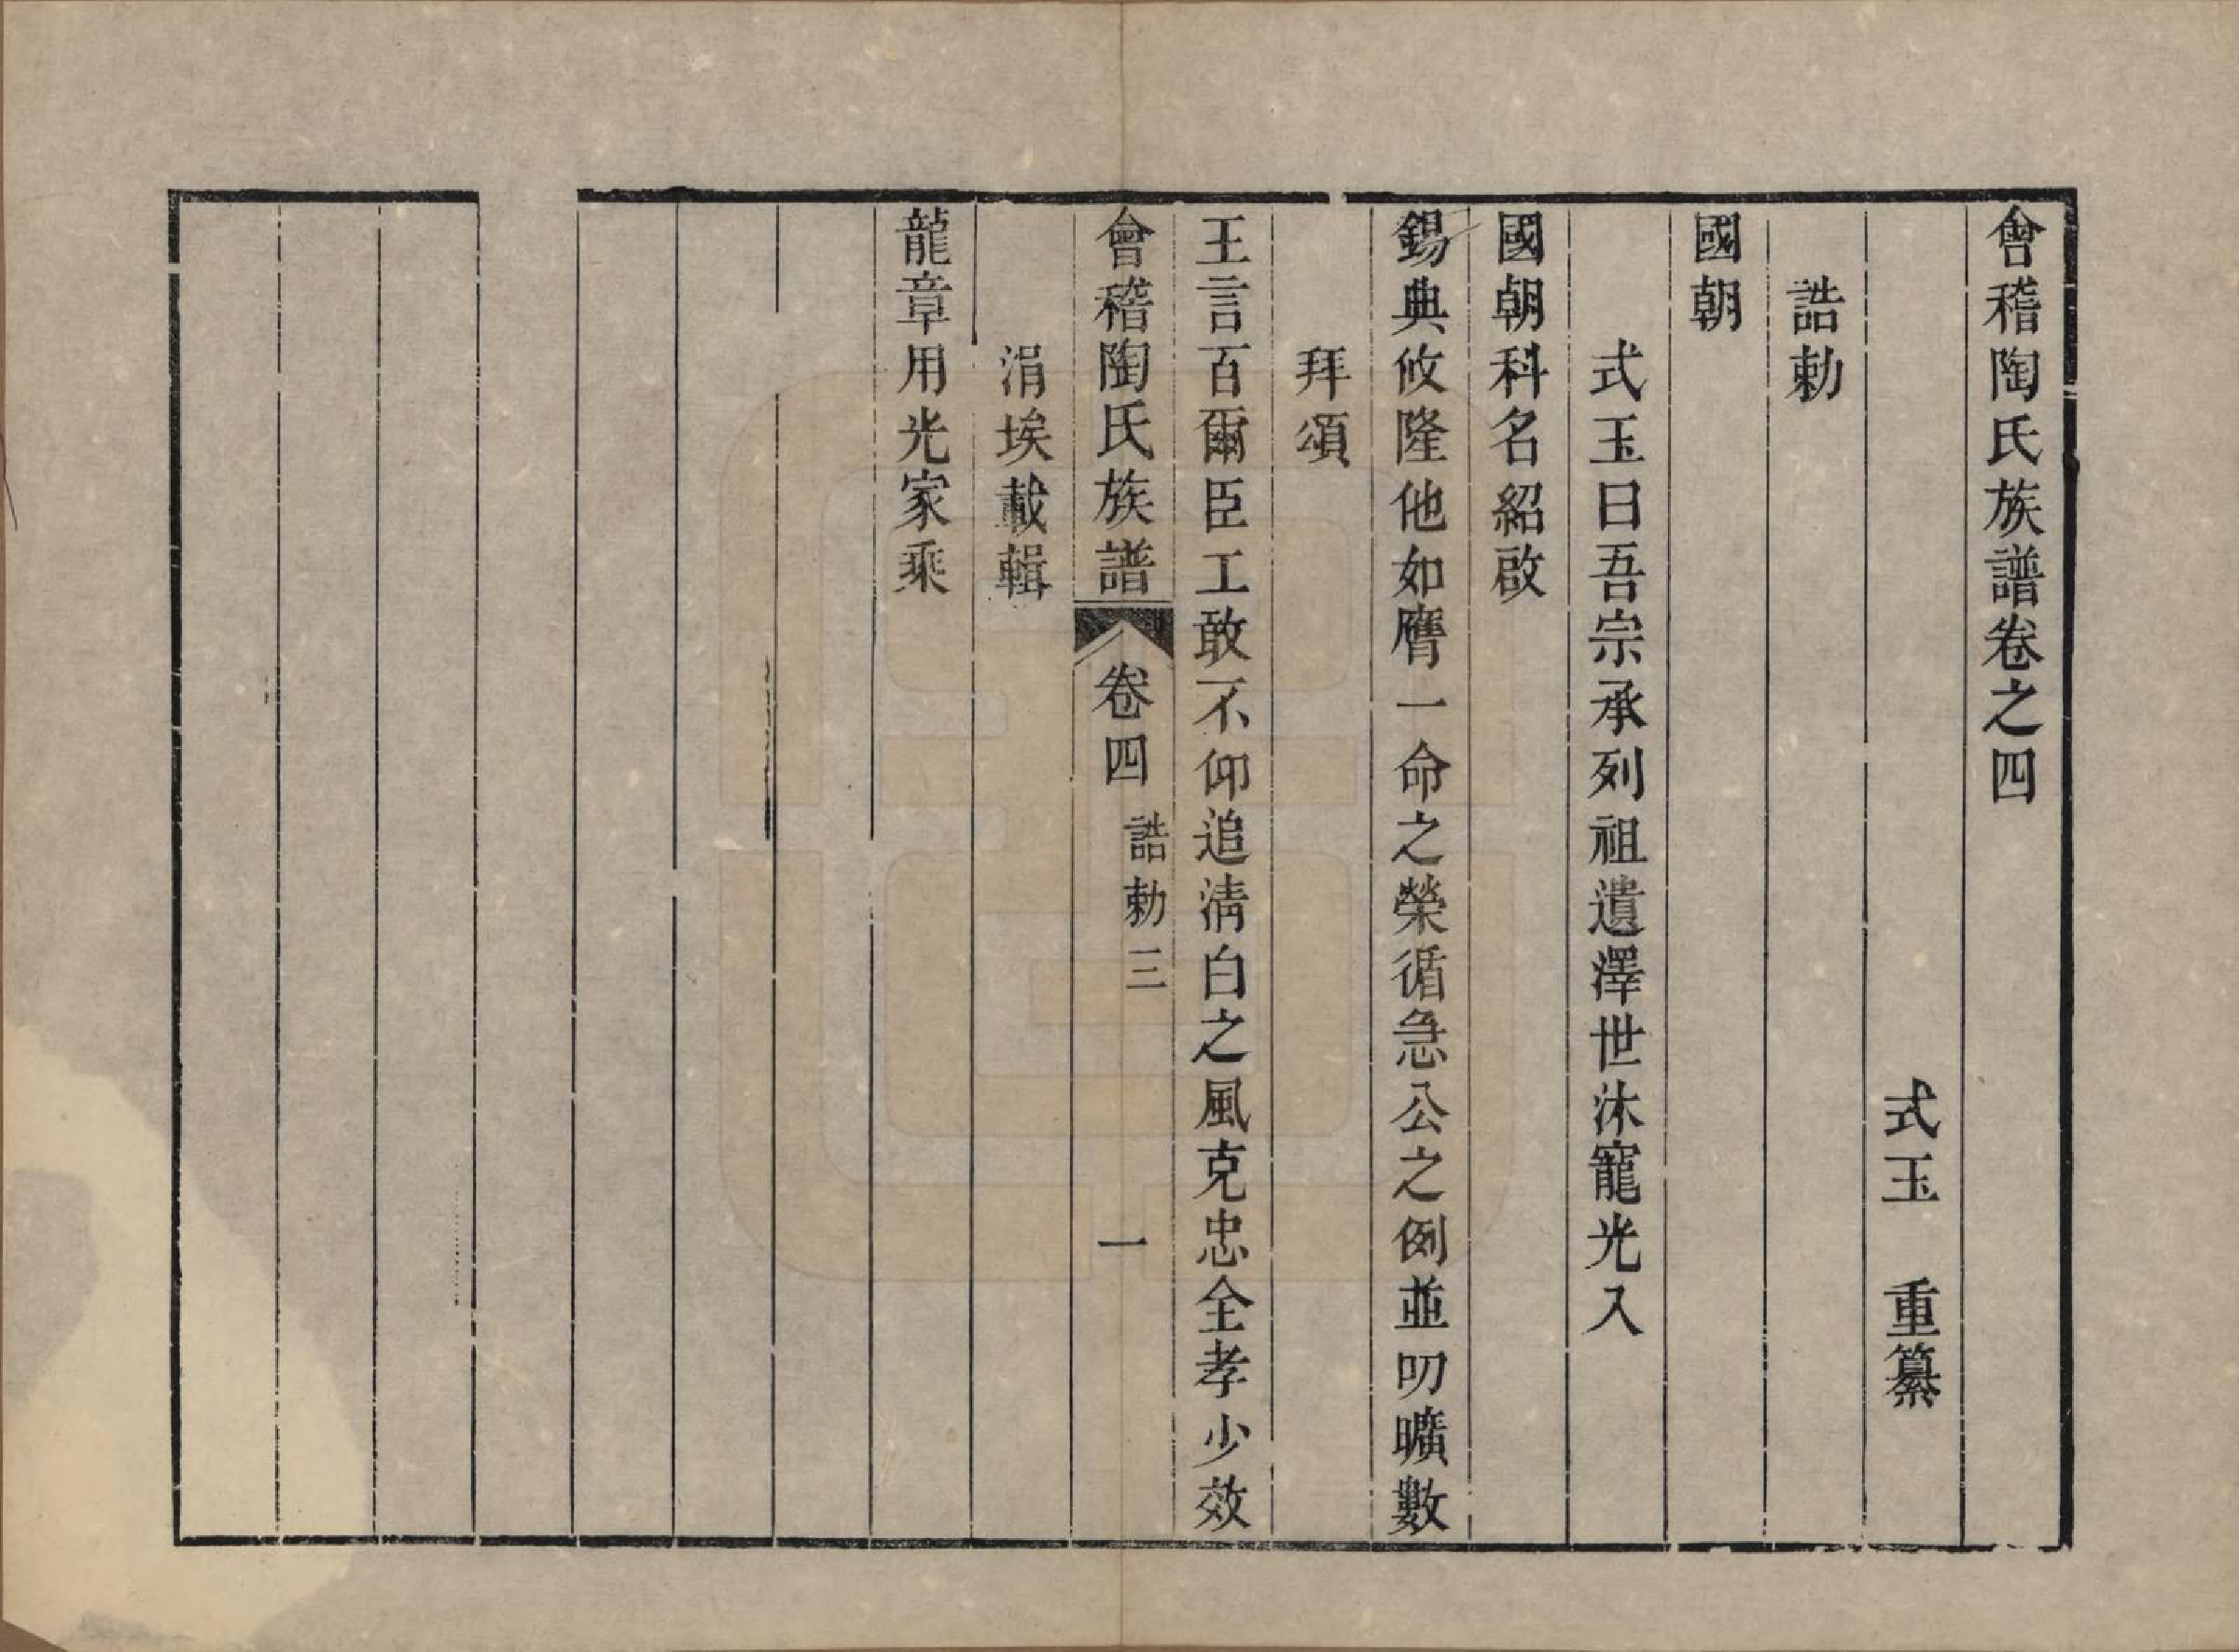 會稽陶氏族譜卷之四
式玉　重纂
誥勅
國朝
式玉曰吾宗承列祖遺澤世沐寵光入
國朝科名紹啟
錫典攸隆他如膺一命之榮循急公之例並叨曠數
拜頌
王言百爾臣工敢不仰追淸白之風克忠全孝少效
會稽陶氏族譜　卷四　誥勅三　一
涓埃載輯
龍章用光家乘